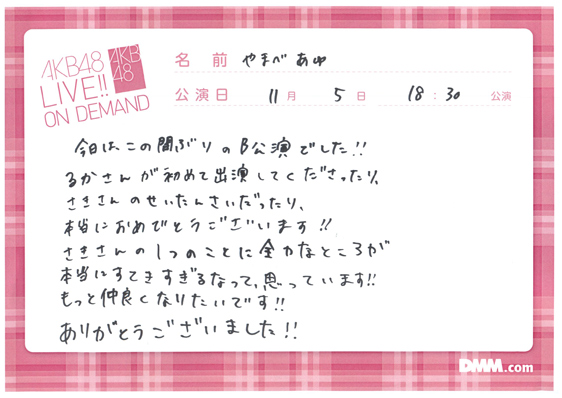 AKB48
LIVE!!
ON DEMAND
AKB
48
名前 やまべ あゆ
公演日 11月 5日 18:30 公演
今日は、この間ぶりのB公演でした!!
るかさんが初めて出演してくださったり、
さきさんのせいたんさいだったり、
本当におめでとうございます!!
さきさんの1つのことに全力なところが
本当にすてきすぎるなって、思っています!!
もっと仲良くなりたいです!!
ありがとうございました!!
DMM.com